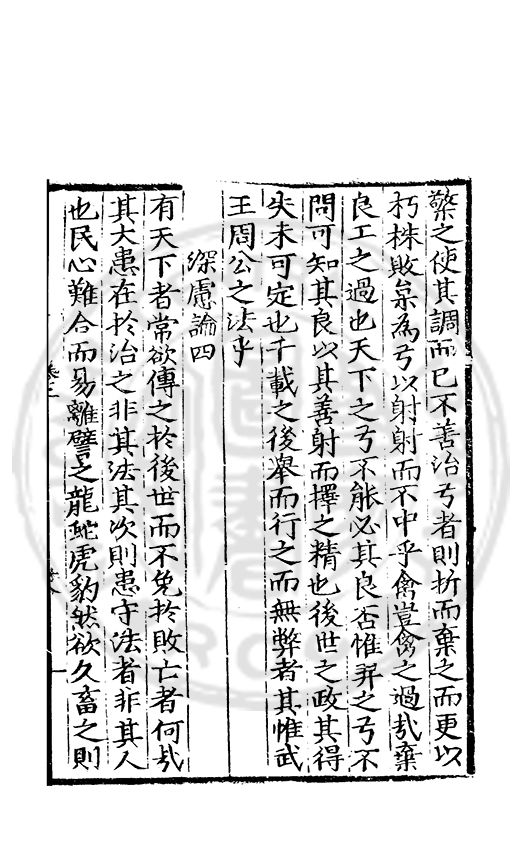 檠之使其調而已不善治弓者則折而棄之而更以
朽株敗枲為弓以射射而不中乎禽豈禽之過㢤棄
良工之過也天下之弓不能必其良否惟羿之弓不
問可知其良以其善射而擇之精也後世之政其得
失未可定也千載之後舉而行之而無弊者其惟武
王周公之法乎
深慮論四
有天下者常欲傳之於後世而不免於敗亡者何㢤
其大患在於治之非其法其次則患守法者非其人
也民心難合而易離譬之龍蛇虎豹然欲久畜之則